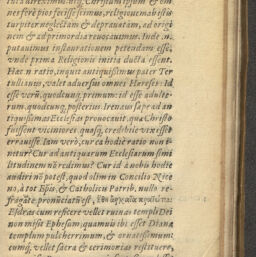 nes ferè pios fecisset
turpiter neglectam & deprauatam, ad origi
nem & ad primordia reuocauimus. Inde n.
putauimus instaurationem petendam esse,
vnde prima Religionis initia ducta essent.
Hæc n. ratio, inquit antiquissimus pater Ter
tullianus, valet aduersus omnes Hæreses: Id
esse verū, quodcunq; primum: id esse adulte-
rum, quodcunq; posterius. Irenæus sæpe ad an
tiquissimas Ecclesias prouocauit, quæ Christo
fuissent viciniores, quasq; credibile vix esset
errauisse. Iam verò, cur ea hodie ratio non i-
nitur? Cur ad antiquarum Ecclesiarum simi
litudinem nō redimus? Cur id à nobis hodie
audiri nō potest, quod olim in Concilio Nice
no, à tot Epis. & Catholicis Patrib. nullo re-
fragāte pronūciatū est, ἔθη ἀρχαῖα κρατείτω:
Esdras cum reficere vellet ruinas templi Dei
non misit Ephesum, quamuis ibi esset Dianæ
templum pulcherrimum, & ornatissimum:
cumq; vellet sacra & cerimonias restituere,